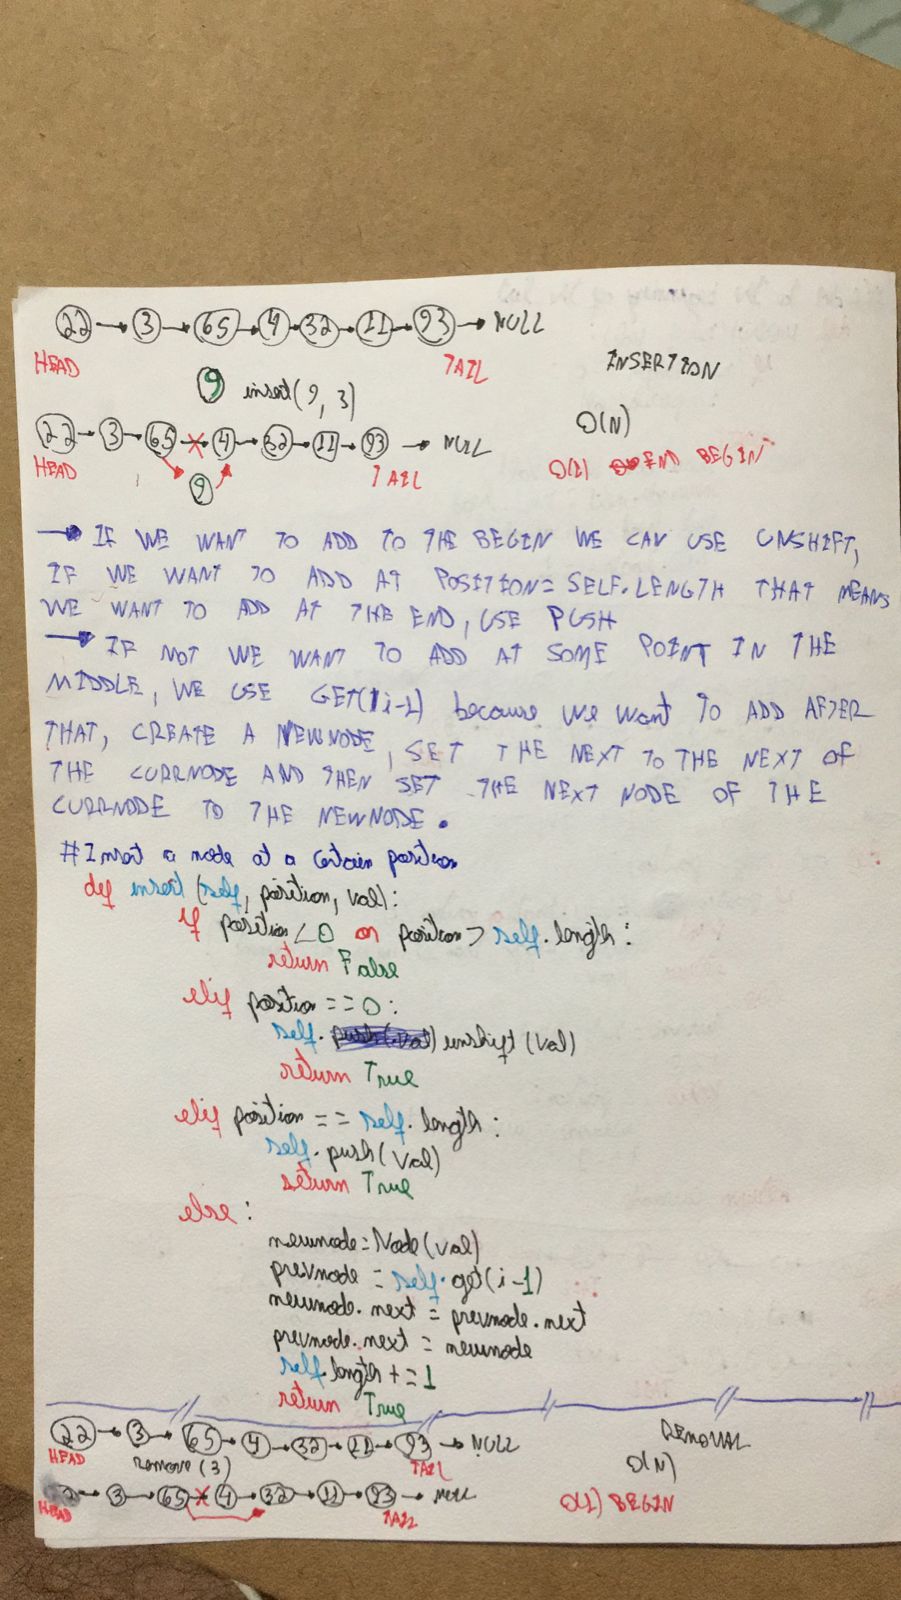 22 → 3 → 65 → 4 → 32 → 11 → 93 → NULL
HEAD TAIL INSERTION
9 insert(9, 3)
O(N)
22 → 3 → 65 → 4 → 32 → 11 → 93 → NULL
HEAD TAIL O(1) END BEGIN
9
→ IF WE WANT TO ADD TO THE BEGIN WE CAN USE UNSHIFT,
IF WE WANT TO ADD AT POSITION = SELF.LENGTH THAT MEANS
WE WANT TO ADD AT THE END, USE PUSH
→ IF NOT WE WANT TO ADD AT SOME POINT IN THE
MIDDLE, WE USE GET(i-1) because we want TO ADD AFTER
THAT, CREATE A NEWNODE, SET THE NEXT TO THE NEXT OF
THE CURRNODE AND THEN SET THE NEXT NODE OF THE
CURRNODE TO THE NEWNODE.
# Insert a node at a certain position
def insert (self, position, val):
if position < 0 or position > self.length:
return False
elif position == 0:
self. push(val) unshift (val)
return True
elif position == self.length:
self.push(val)
return True
else:
newnode = Node(val)
prevnode = self.get(i-1)
newnode.next = prevnode.next
prevnode.next = newnode
self.length += 1
return True
22 → 3 → 65 → 4 → 32 → 11 → 93 → NULL REMOVAL
HEAD remove (3) TAIL O(N)
3 → 65 → 4 → 32 → 11 → 93 → NULL O(1) BEGIN
HEAD TAIL